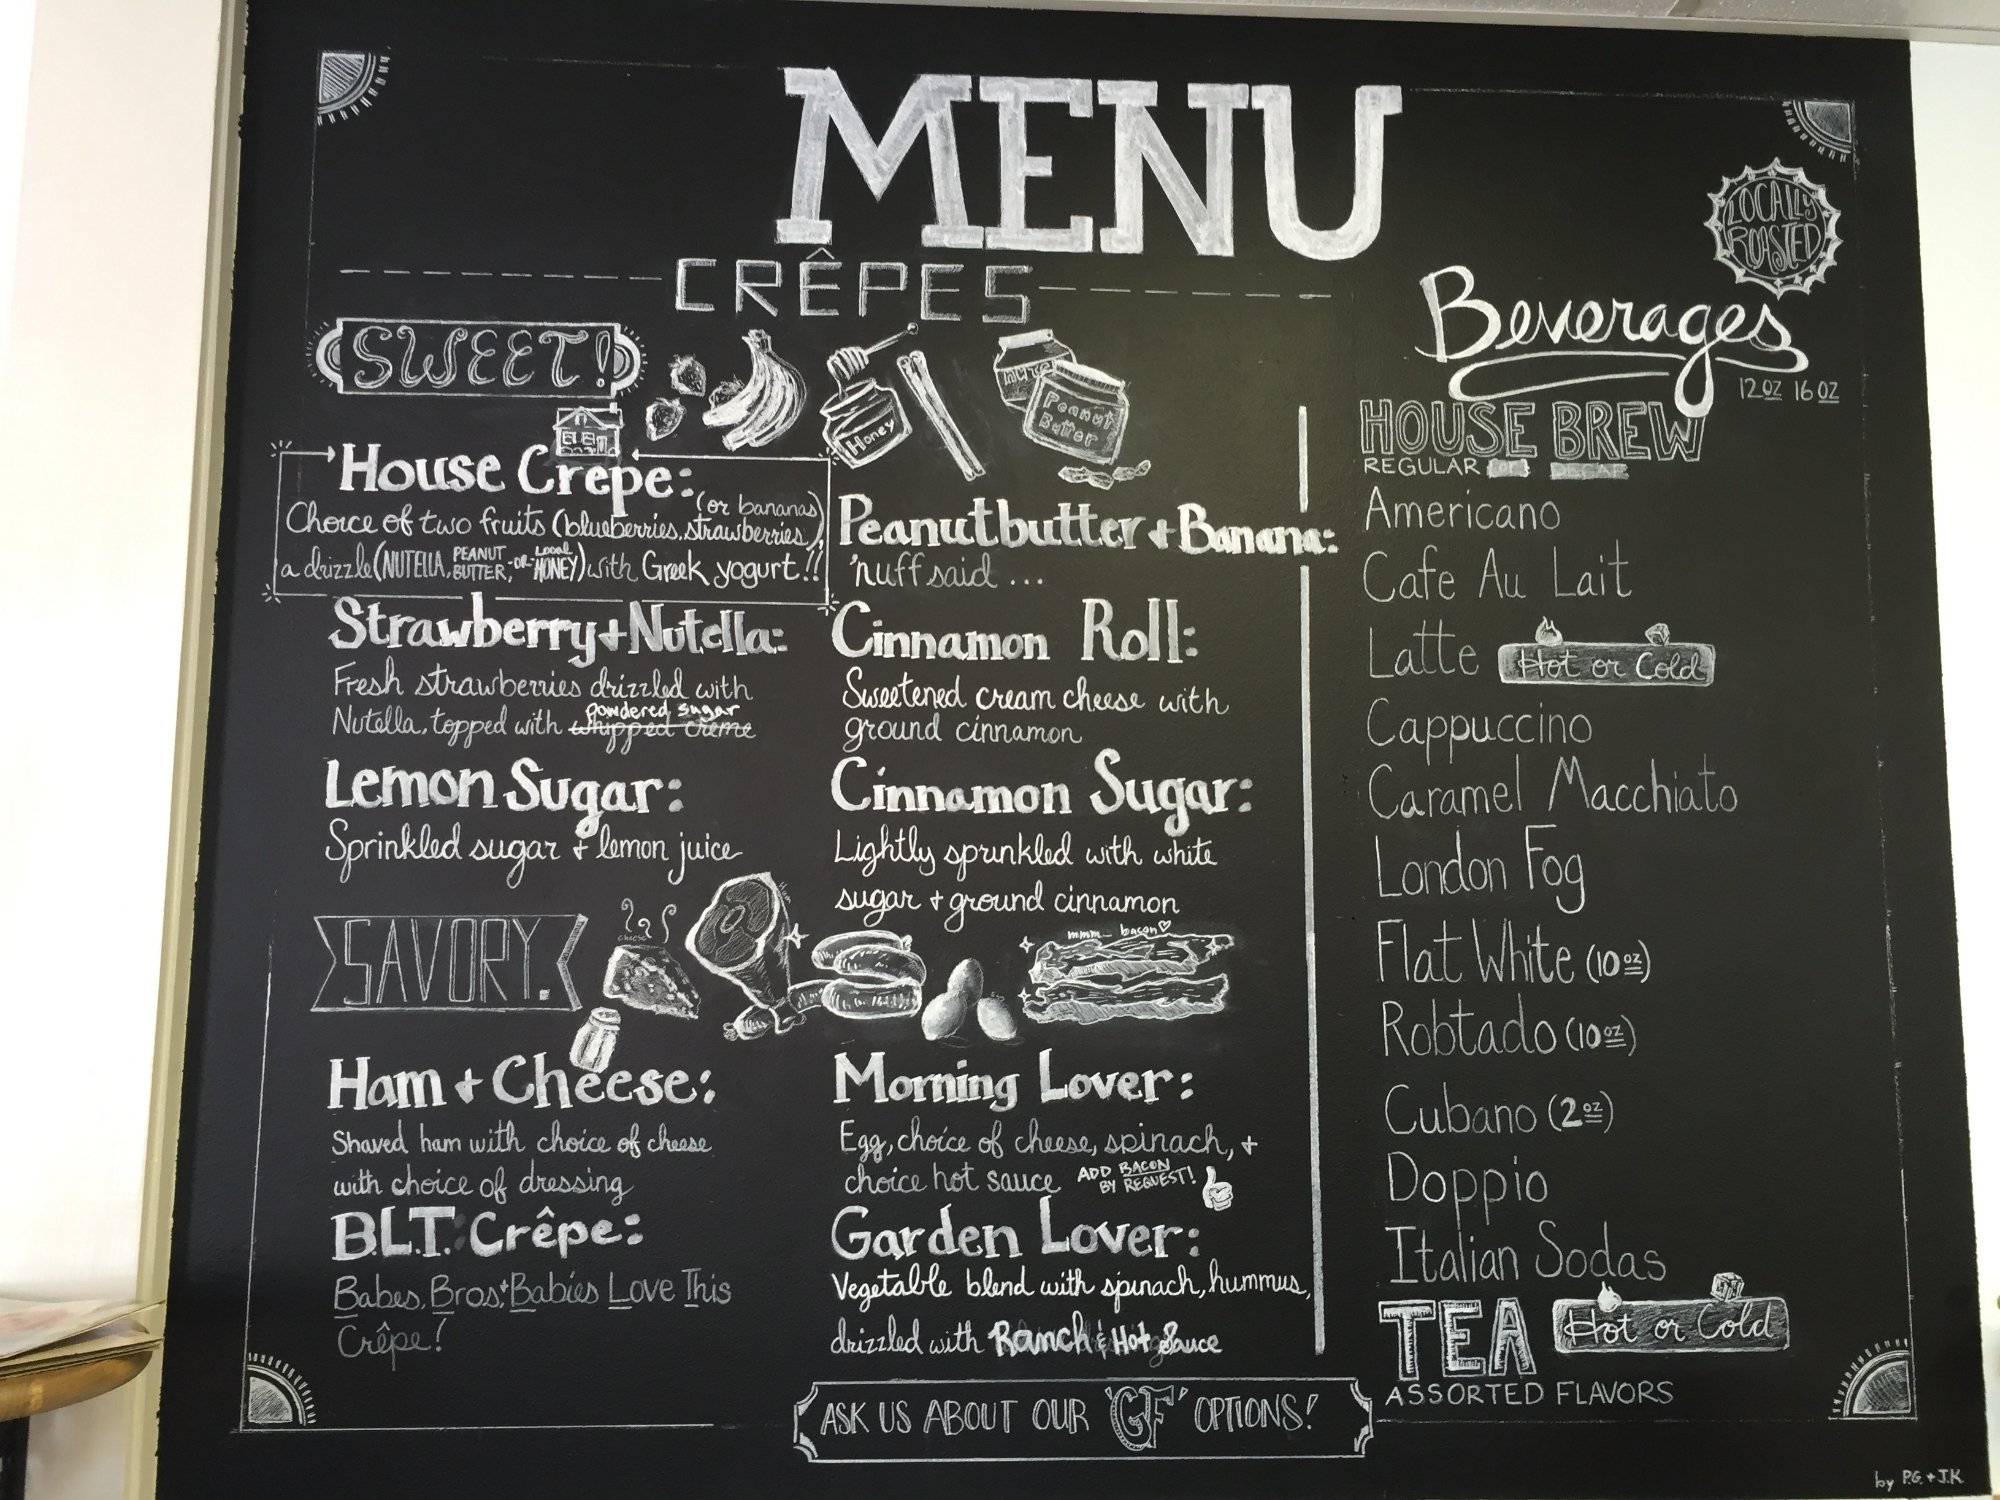 MENU
CRÊPES
SWEET!
Honey
nut
Peanut
Butter
House Crepe:
(or bananas)
Choice of two fruits (blueberries, strawberries),
a drizzle (NUTELLA, PEANUT BUTTER, -OR- Local HONEY) with Greek yogurt!!
Strawberry + Nutella:
Fresh strawberries drizzled with
powdered sugar
Nutella, topped with whipped creme
Lemon Sugar:
Sprinkled sugar + lemon juice
Peanutbutter + Banana:
'nuff said ...
Cinnamon Roll:
Sweetened cream cheese with
ground cinnamon
Cinnamon Sugar:
Lightly sprinkled with white
sugar + ground cinnamon
SAVORY.
cheese
mmm... bacon
Ham + Cheese:
Shaved ham with choice of cheese
with choice of dressing
B.L.T. Crêpe:
Babes, Bros, + Babies Love This
Crêpe!
Morning Lover:
Egg, choice of cheese, spinach, +
choice hot sauce ADD BACON
BY REQUEST!
Garden Lover:
Vegetable blend with spinach, hummus,
drizzled with Ranch & Hot Sauce
ASK US ABOUT OUR 'GF' OPTIONS!
LOCALLY
ROASTED
Beverages
12 oz 16 oz
HOUSE BREW
REGULAR or DECAF
Americano
Cafe Au Lait
Latte Hot or Cold
Cappuccino
Caramel Macchiato
London Fog
Flat White (10 oz)
Robtado (10 oz)
Cubano (2 oz)
Doppio
Italian Sodas
TEA Hot or Cold
ASSORTED FLAVORS
by P.G. + J.K.